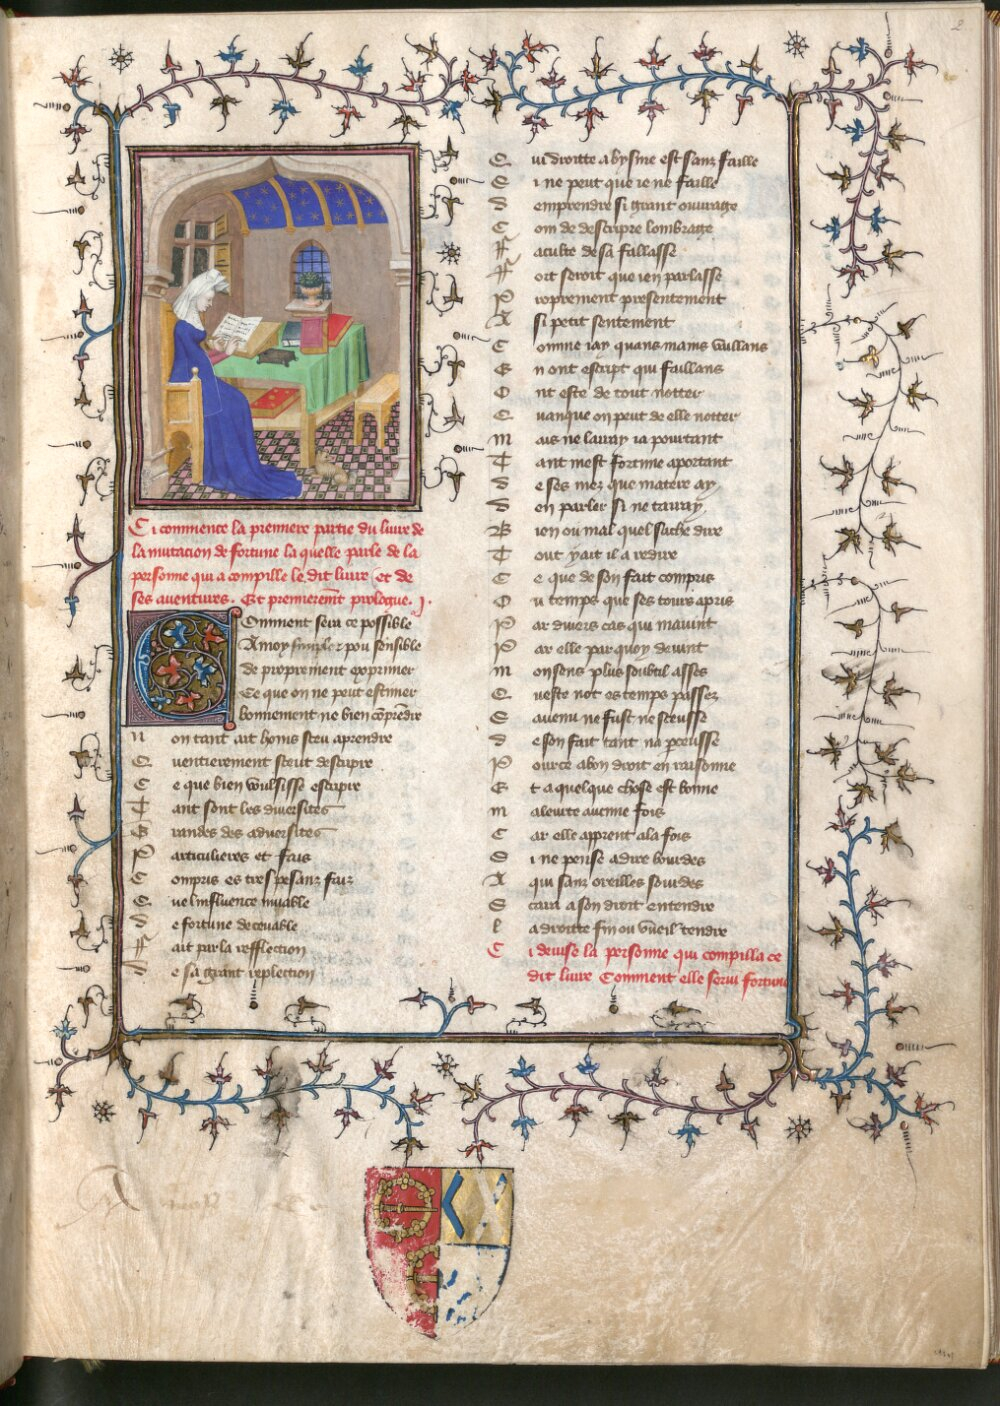 Ci commence la premiere partie du livre de
la mutacion de fortune la quelle parle de la
personne qui a compille le dit livre et de
ses aventures. Et premieremt prologue. j.
Comment sera ce possible
A moy simple et pou sensible
de proprement exprimer
Ce que on ne peut estimer
bonnement ne bien cōprēdre
non tant ait homs sceu aprendre
Quentierement sceut descripre
Ce que bien voulsisse escripre
Tant sont les diversites
Grandes des adversites
Particulieres et fais
Compris es tres pesanz faiz
Que linfluence muable
de fortune decevable
Fait par la refflection
de sa grant repletion
Qui droitte abysme est sanz faille
Si ne peut que ie ne faille
demprendre si grant ouvrage
Com de descripre lombrage
Faculte de sa fallasse
Fort seroit que ien parlasse
Proprement presentement
A si petit sentement
Comme iay quans mains vaillans
En ont escript qui faillans
Ont este de tout notter
Quanque on peut de elle notter
mais ne lairay ia pourtant
Tant mest fortune aportant
de ses mez que matere ay
den parler si ne tairay
Bien ou mal quel sache dire
Tout y ait il a redire
Ce que de son fait compris
Ou temps que ses tours apris
Par divers cas qui mavint
Par elle par quoy devint
mon sens plus soubtil asses
Queste not es temps passez
Savenu ne fust ne sceusse
de son fait tant na peusse
Pource a bon droit en raisonne
Et a quelque chose est bonne
maleurte aucune fois
Car elle apprent a la fois
Si ne pense a dire bourdes
A qui sanz oreilles sourdes
Scara a son droit entendre
la droitte fin ou vueil tendre
Ci devise la personne qui compilla ce
dit livre Comment elle servi fortune
2